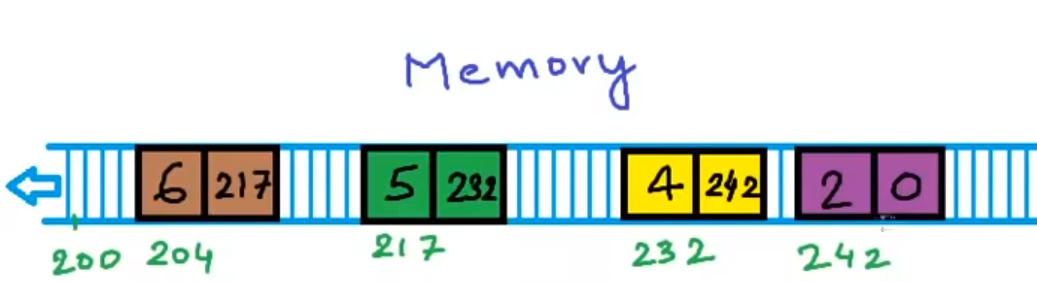 Memory
6 217 5 232 4 242 2 0
200 204 217 232 242